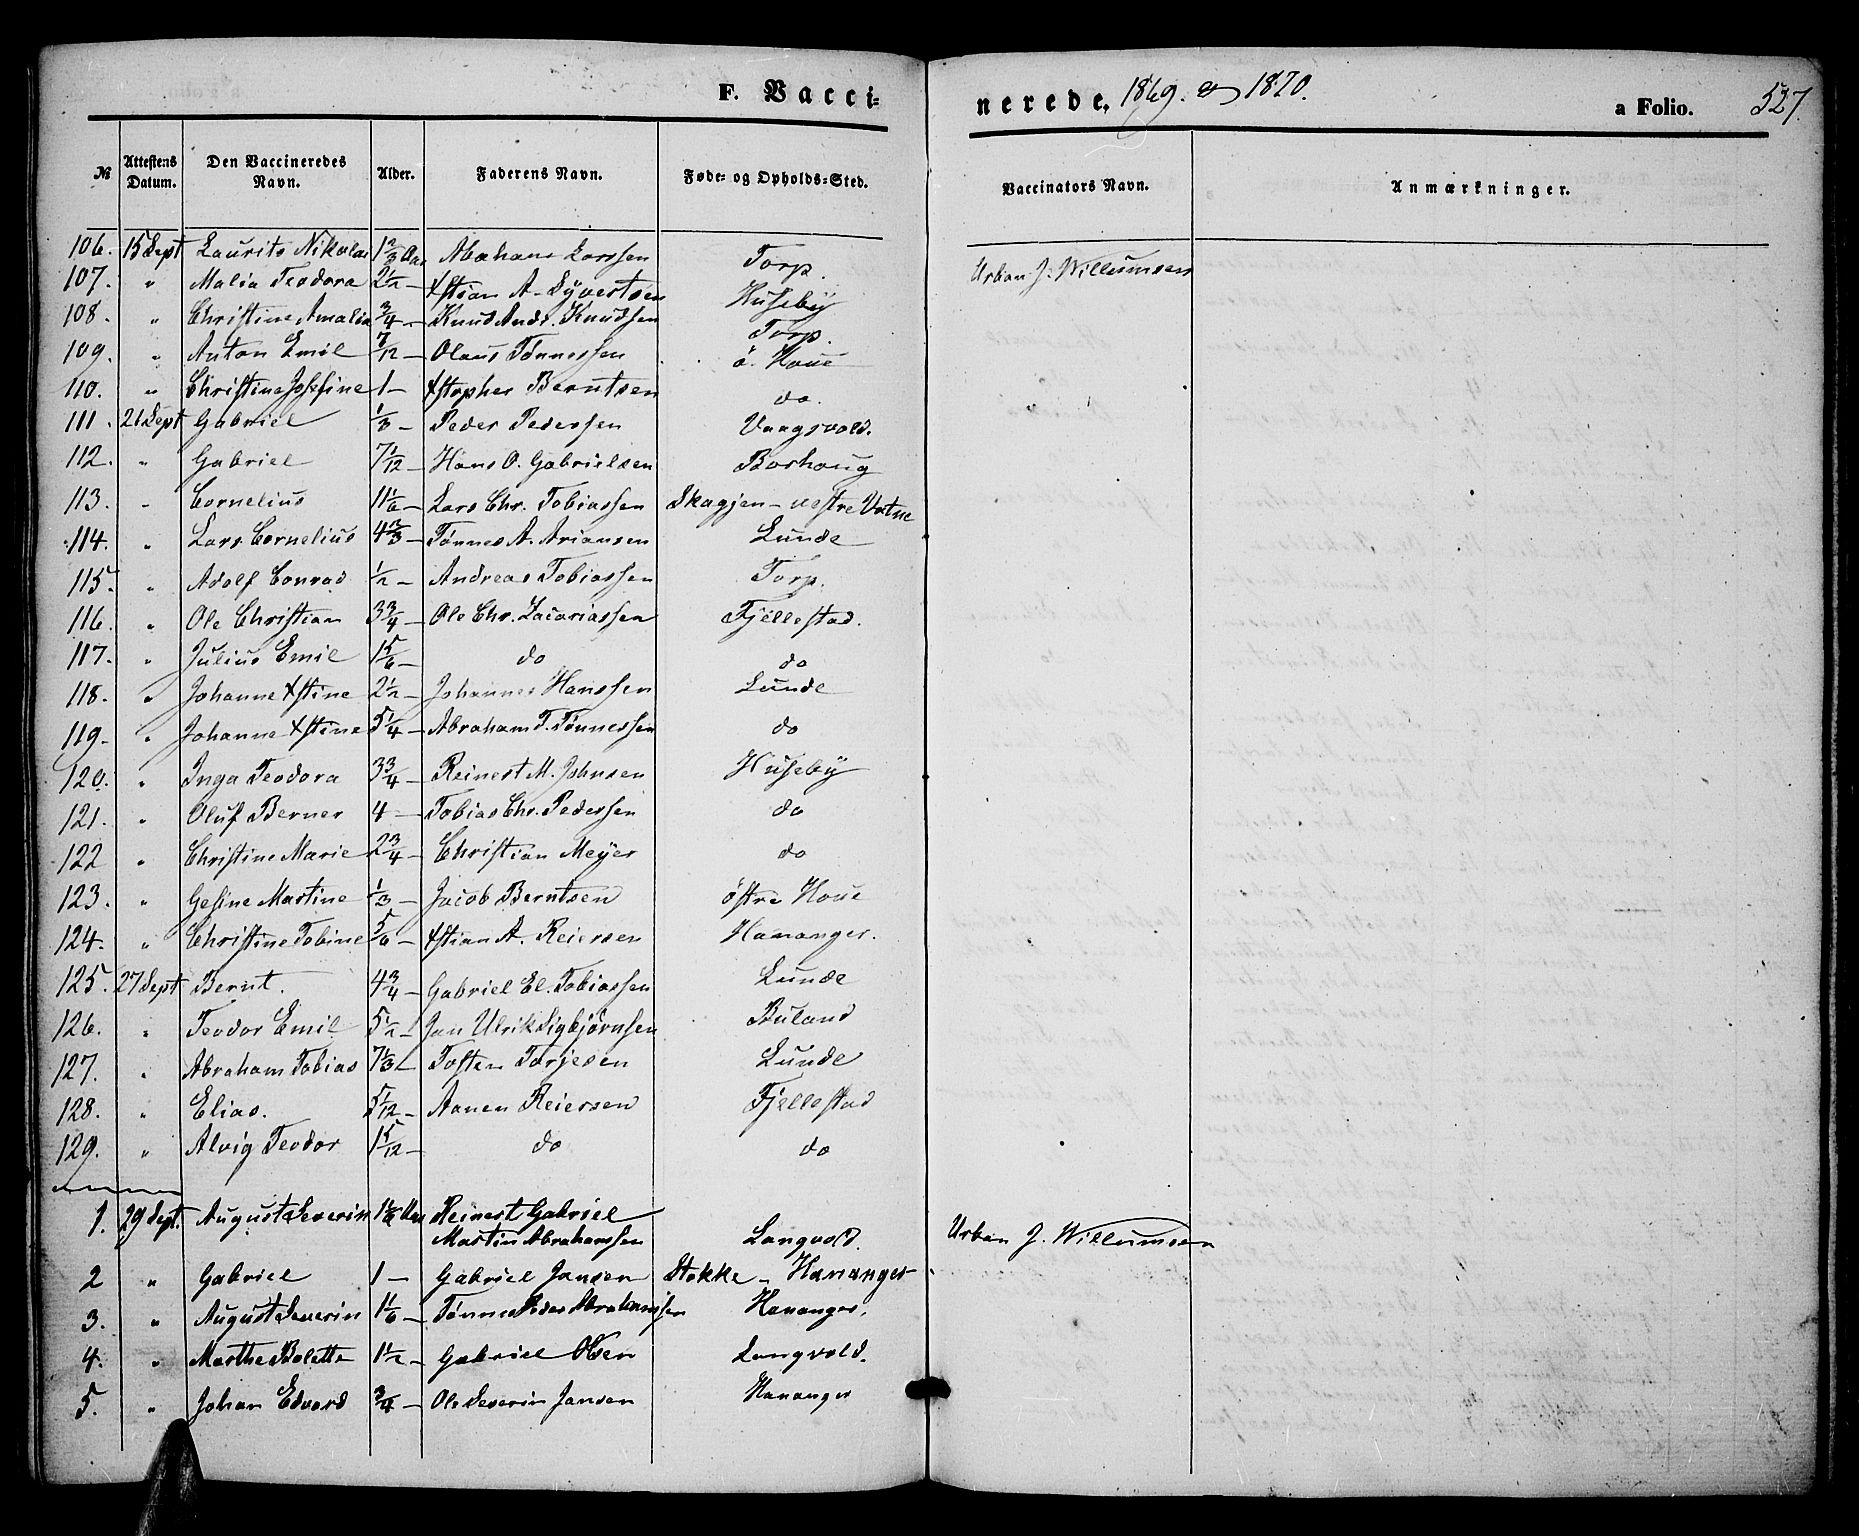 F. Vacci-
nerede. 1869. & 1870.
a Folio. 527.
№ Attestens Datum. Den Vaccineredes Navn. Alder. Faderens Navn. Føde- og Opholds-Sted. Vaccinators Navn. Anmærkninger.
106. 15 Sept Laurits Nikolai 1 2/3 Aar Abaham Larssen Torp. Urban J. Willumsen
107. " Malia Teodora 2 1/2 – Xstian A. Syvertsen Huseby
108. " Christine Amalia 3/4 – Knud Andr. Knudsen Torp.
109. " Anton Emil 7/12 – Olaus Tønnessen ö. Houe
110. " Christine Josefine 1 – Xstopher Berntsen do.
111. 21 Sept Gabriel 1/3 – Peder Pedersen Vaagsvold.
112. " Gabriel 7 1/12 – Hans O. Gabrielsen Borhoug
113. " Cornelius 11 1/6 – Lars Chr. Tobiassen Skagjen – vestre Vatne
114. " Lars Cornelius 4 2/3 – Tønnes A. Ariansen Lunde
115. " Adolf Conrad 1/2 – Andreas Tobiassen Torp.
116. " Ole Christian 3 3/4 – Ole Chr. Zacariassen Fjellestad.
117. " Julius Emil 1 5/6 – do do
118. " Johanne Xstine 2 1/2 – Johannes Hanssen Lunde
119. " Johanne Xstine 5 1/4 – Abraham T. Tønnessen do
120. " Inga Teodora 3 3/4 – Reinert M. Johnsen Huseby
121. " Oluf Berner 4 – Tobias Chr. Pedersen do
122 " Christine Marie 2 3/4 – Christian Meyer do
123. " Gesine Martine 1/3 – Jacob Berntsen östre Houe
124. " Christine Tobine 5/6 – Xstian A. Reiersen Hananger.
125. 27 Sept Bernt. 4 3/4 – Gabriel El. Tobiassen Lunde
126. " Teodor Emil 5 1/2 – Jan Ulrik Sigbjørnsen Buland
127. " Abraham Tobias 7 1/3 – Tosten Torjesen Lunde
128. " Elias. 5 1/12 – Aanen Reiersen Fjellestad
129. " Alvig Teodor 1 5/12 – do do
1. 29 Sept. August Severin 1 1/6 Aar Reinert Gabriel
Martin Abrahamsen Langvold. Urban J. Willumsen
2 " Gabriel 1 – Gabriel Jansen Stokke – Hananger
3. " August Severin 1 1/6 – Tønnes Peder Abrahamsen Hananger.
4. " Marthe Bolette 1 1/2 – Gabriel Olsen Langvold.
5. " Johan Edvard 3/4 – Ole Severin Jansen Hananger